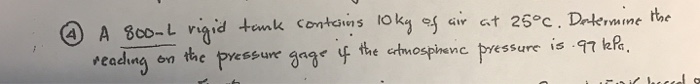 ④ A 800-L rigid tank contains 10 kg of air at 25°C. Determine the
reading on the pressure gage if the atmospheric pressure is 97 kPa.